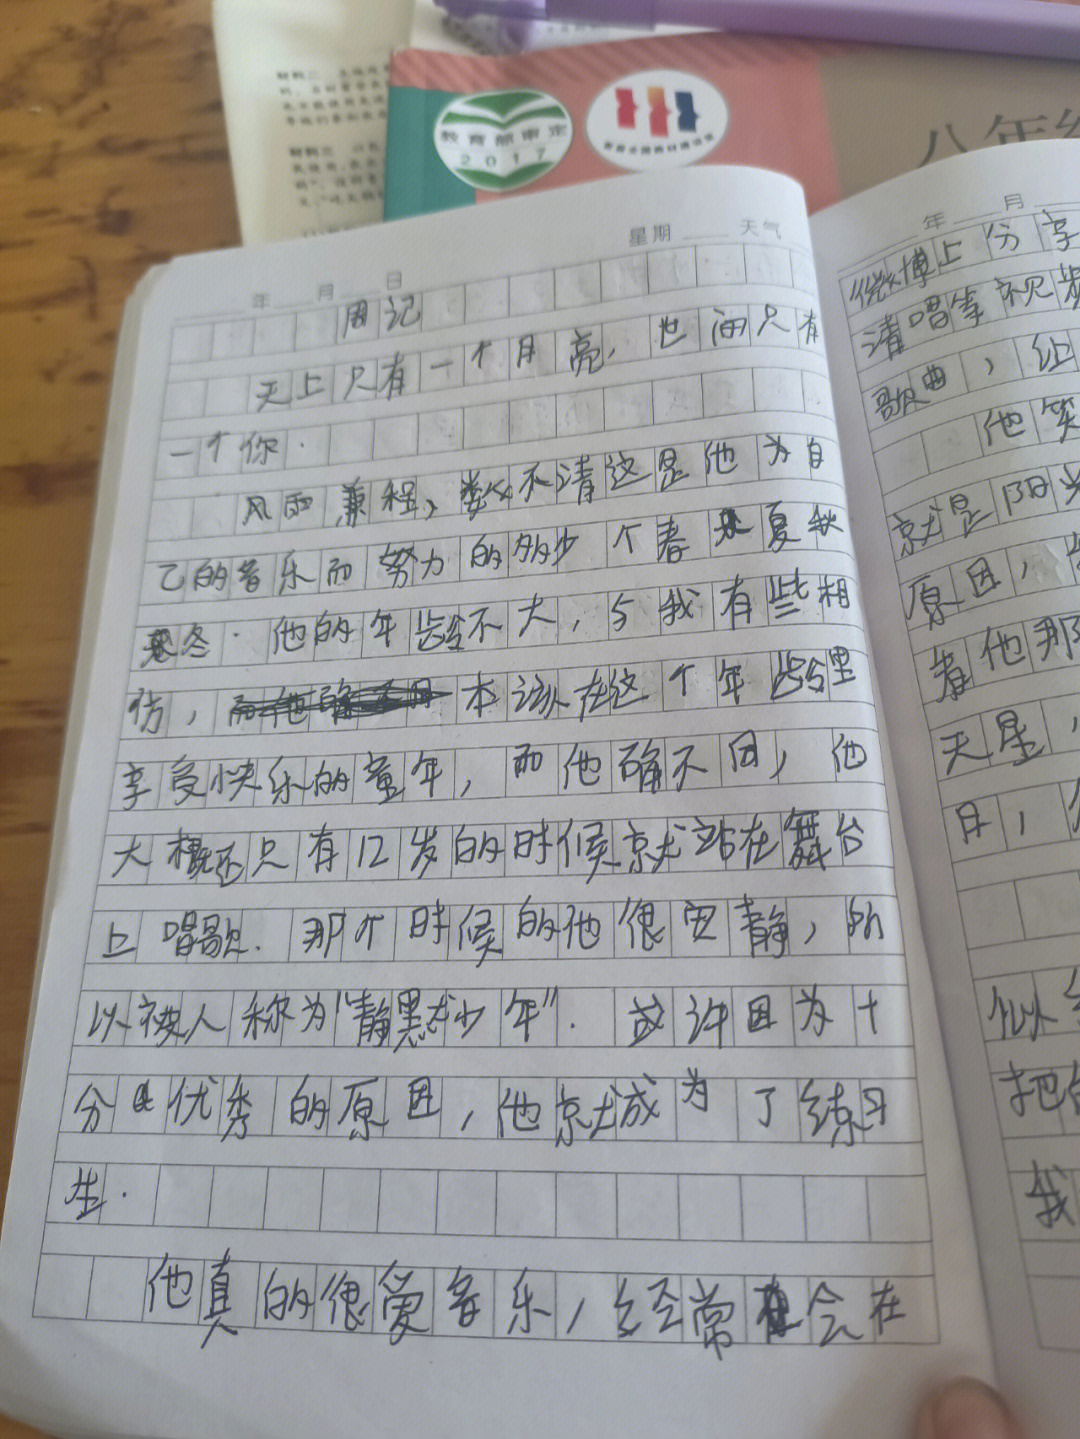 教育部审定
2017
八年级
年 月 日 星期 天气
周记
天上只有一个月亮，世间只有
一个你.
风雨兼程、数不清这是他为自
己的音乐而努力的多少个春夏秋
冬. 他的年龄不大，与我有些相
仿，本该在这个年龄里
享受快乐的童年，而他确不同，他
大概还只有12岁的时候就站在舞台
上唱歌. 那个时候的他很安静，所
以被人称为“静默少年”. 或许因为十
分优秀的原因，他就成为了练习
生.
他真的很爱音乐，经常会在
年 月
微博上分享
清唱等视频
歌曲，让
他笑
就是阳光
原因，
着他那
天星，
月，
似
把
我